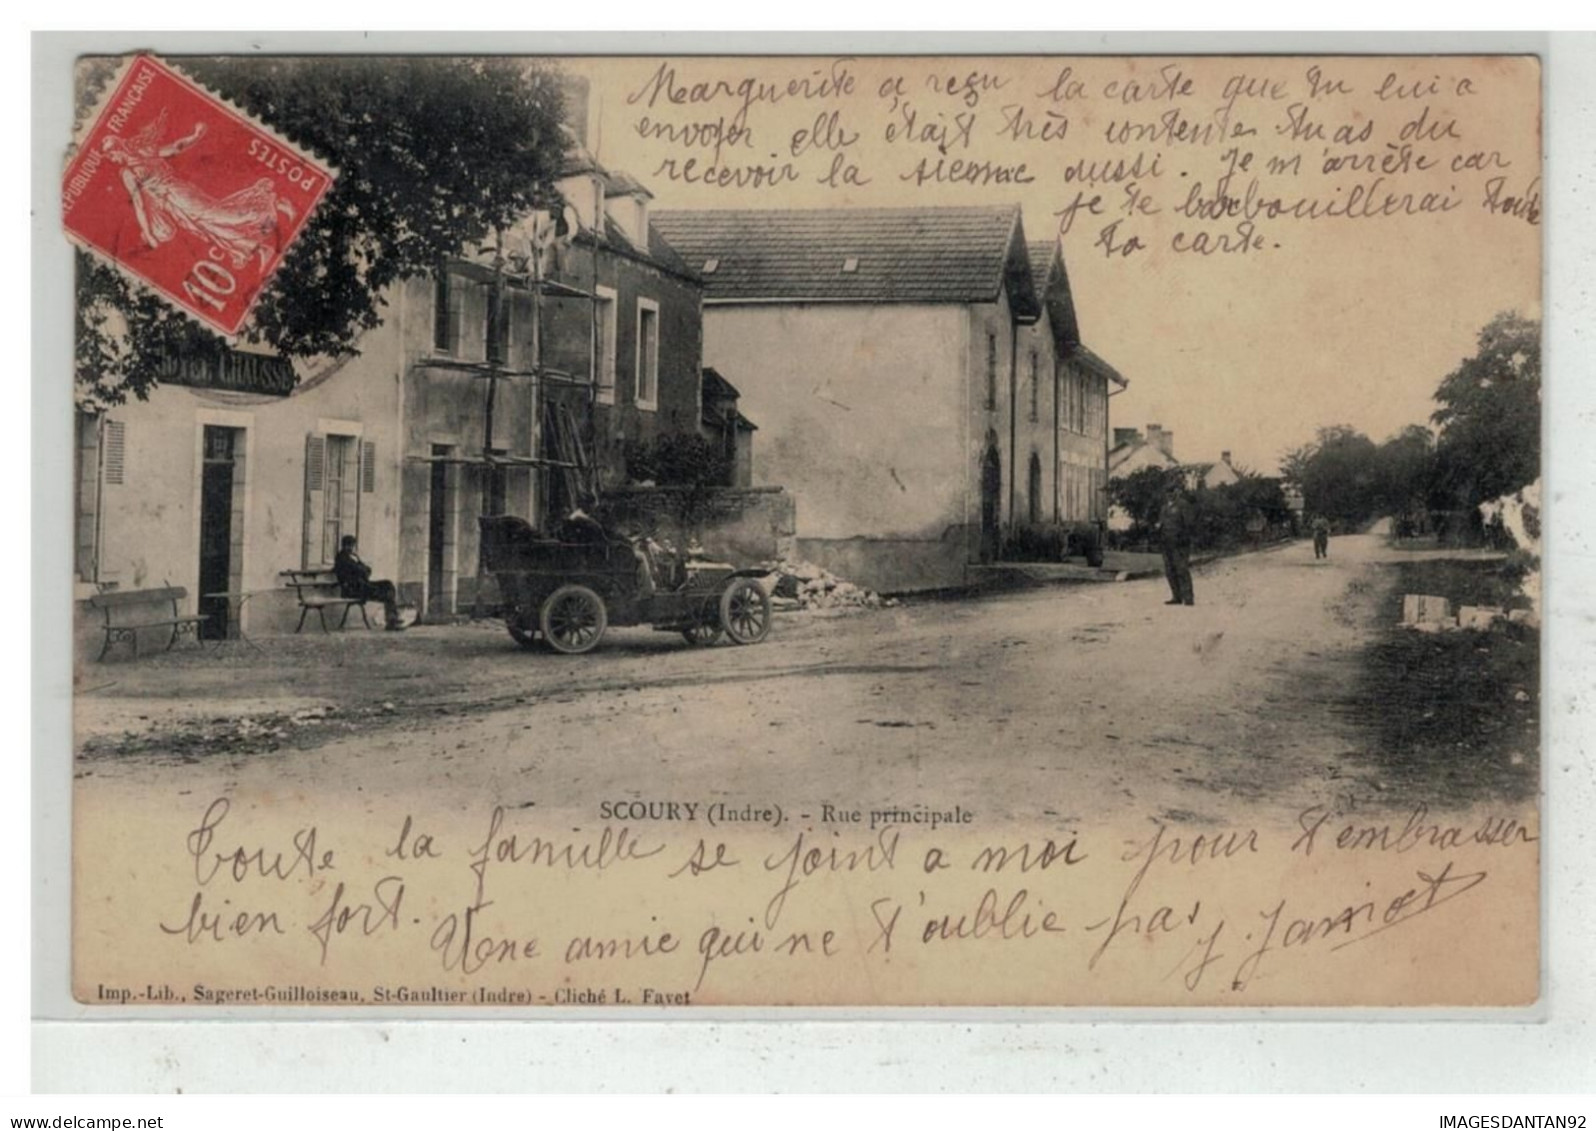 RÉPUBLIQUE FRANÇAISE
POSTES
10c
Marguerite a reçu la carte que tu lui a
envoyer elle était très contente tu as du
recevoir la sienne aussi. Je m'arrête car
je te barbouillerai toute
ta carte.
HOTEL CHAUSSÉ
SCOURY (Indre). - Rue principale
Toute la famille se joint a moi pour t'embrasser
bien fort. Une amie qui ne t'oublie pas J. Jamet
Imp.-Lib., Sageret-Guilloiseau, St-Gaultier (Indre) - Cliché L. Favet
www.delcampe.net
IMAGESDANTAN92